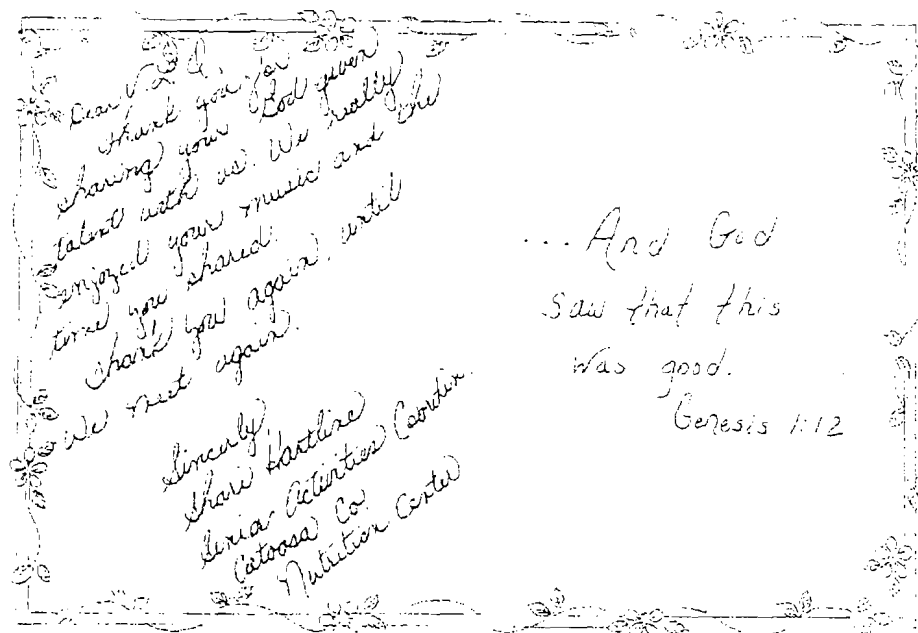 Dear V. L. A,
thank you for
sharing your God given
talent with us. We really
enjoyed your music and the
time you shared.
Thank you again, until
we meet again.
Sincerly,
Shari Hartline
Senior Activities Coordin.
Catoosa Co.
Nutrition Center
... And God
saw that this
was good.
Genesis 1:12